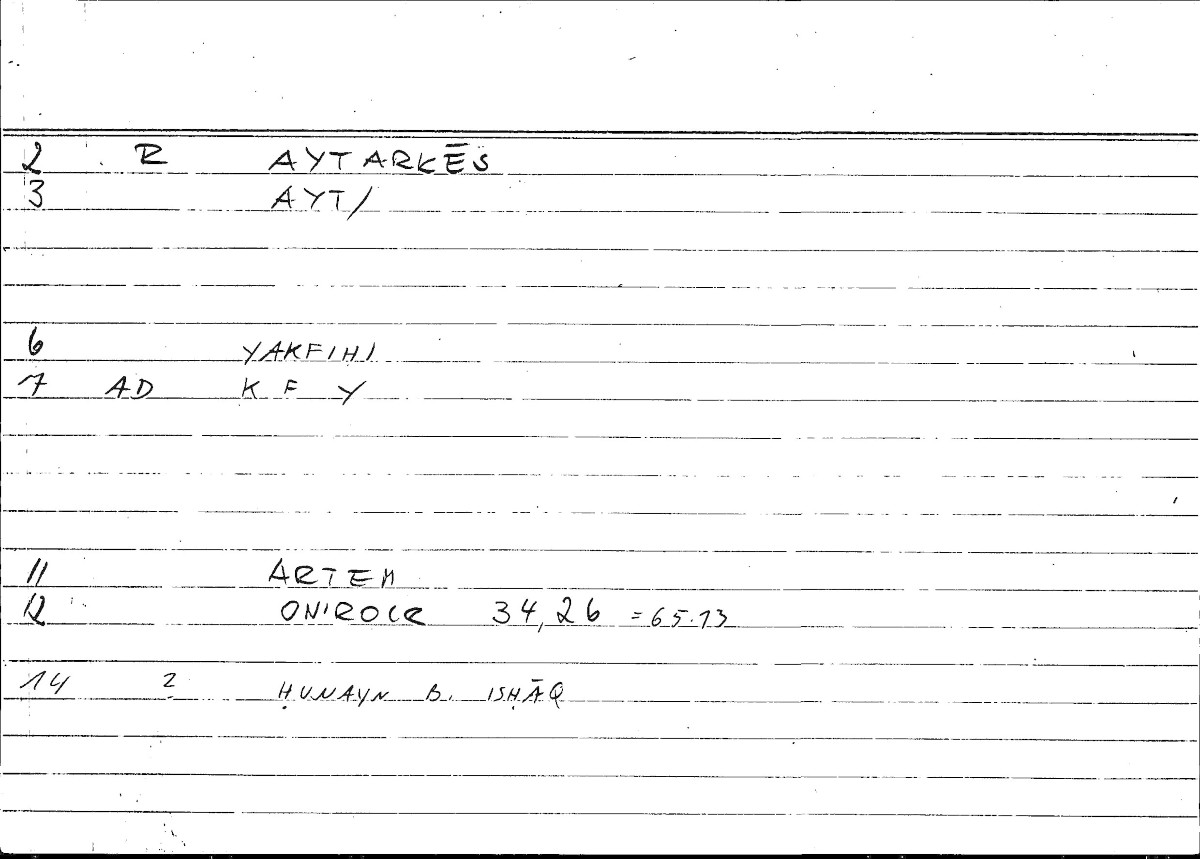 2 R AYTARKĒS
3 AYT/
6 YAKFIHI
7 AD K F Y
11 ARTEM
12 ONIROCR 34,26 = 65.13
14 2 ḤUNAYN B. ISḤĀQ